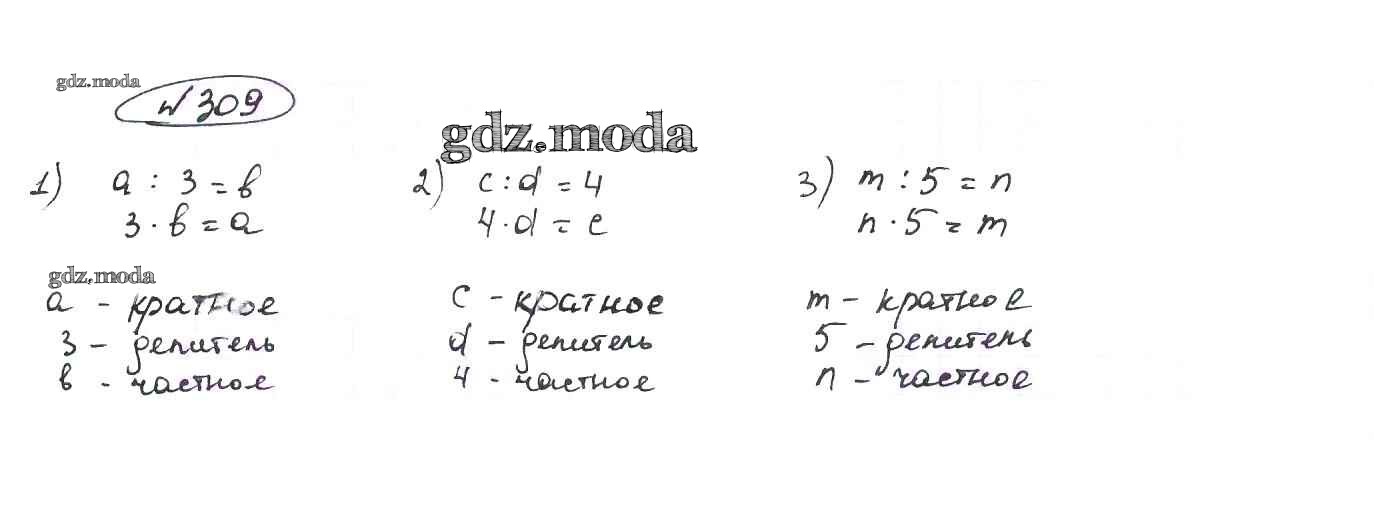 gdz.moda
№ 309
gdz.moda
1) a : 3 = в
3 · в = a
2) c : d = 4
4 · d = c
3) m : 5 = n
n · 5 = m
gdz.moda
a - кратное
3 - делитель
в - частное
c - кратное
d - делитель
4 - частное
m - кратное
5 - делитель
n - частное